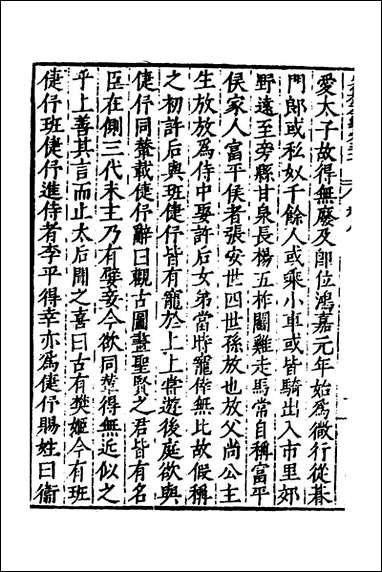 愛太子故得無廢及卽位鴻嘉元年始爲微行從朞
門郎或私奴千餘人或乘小車或皆騎出入市里郊
野遠至旁縣甘泉長楊五柞鬬雞走馬當自稱富平
侯家人富平侯者張安世四世孫放也放父尚公主
生放放爲侍中娶許后女弟當時寵倖無比故假稱
之初許后與班倢伃皆有寵於上上嘗遊後庭欲與
倢伃同輦載倢伃辭曰觀古圖畫聖賢之君皆有名
臣在側三代末主乃有嬖妾今欲同輦得無近似之
乎上善其言而止太后聞之喜曰古有樊姬今有班
倢伃班倢伃進侍者李平得幸亦爲倢伃賜姓曰衞